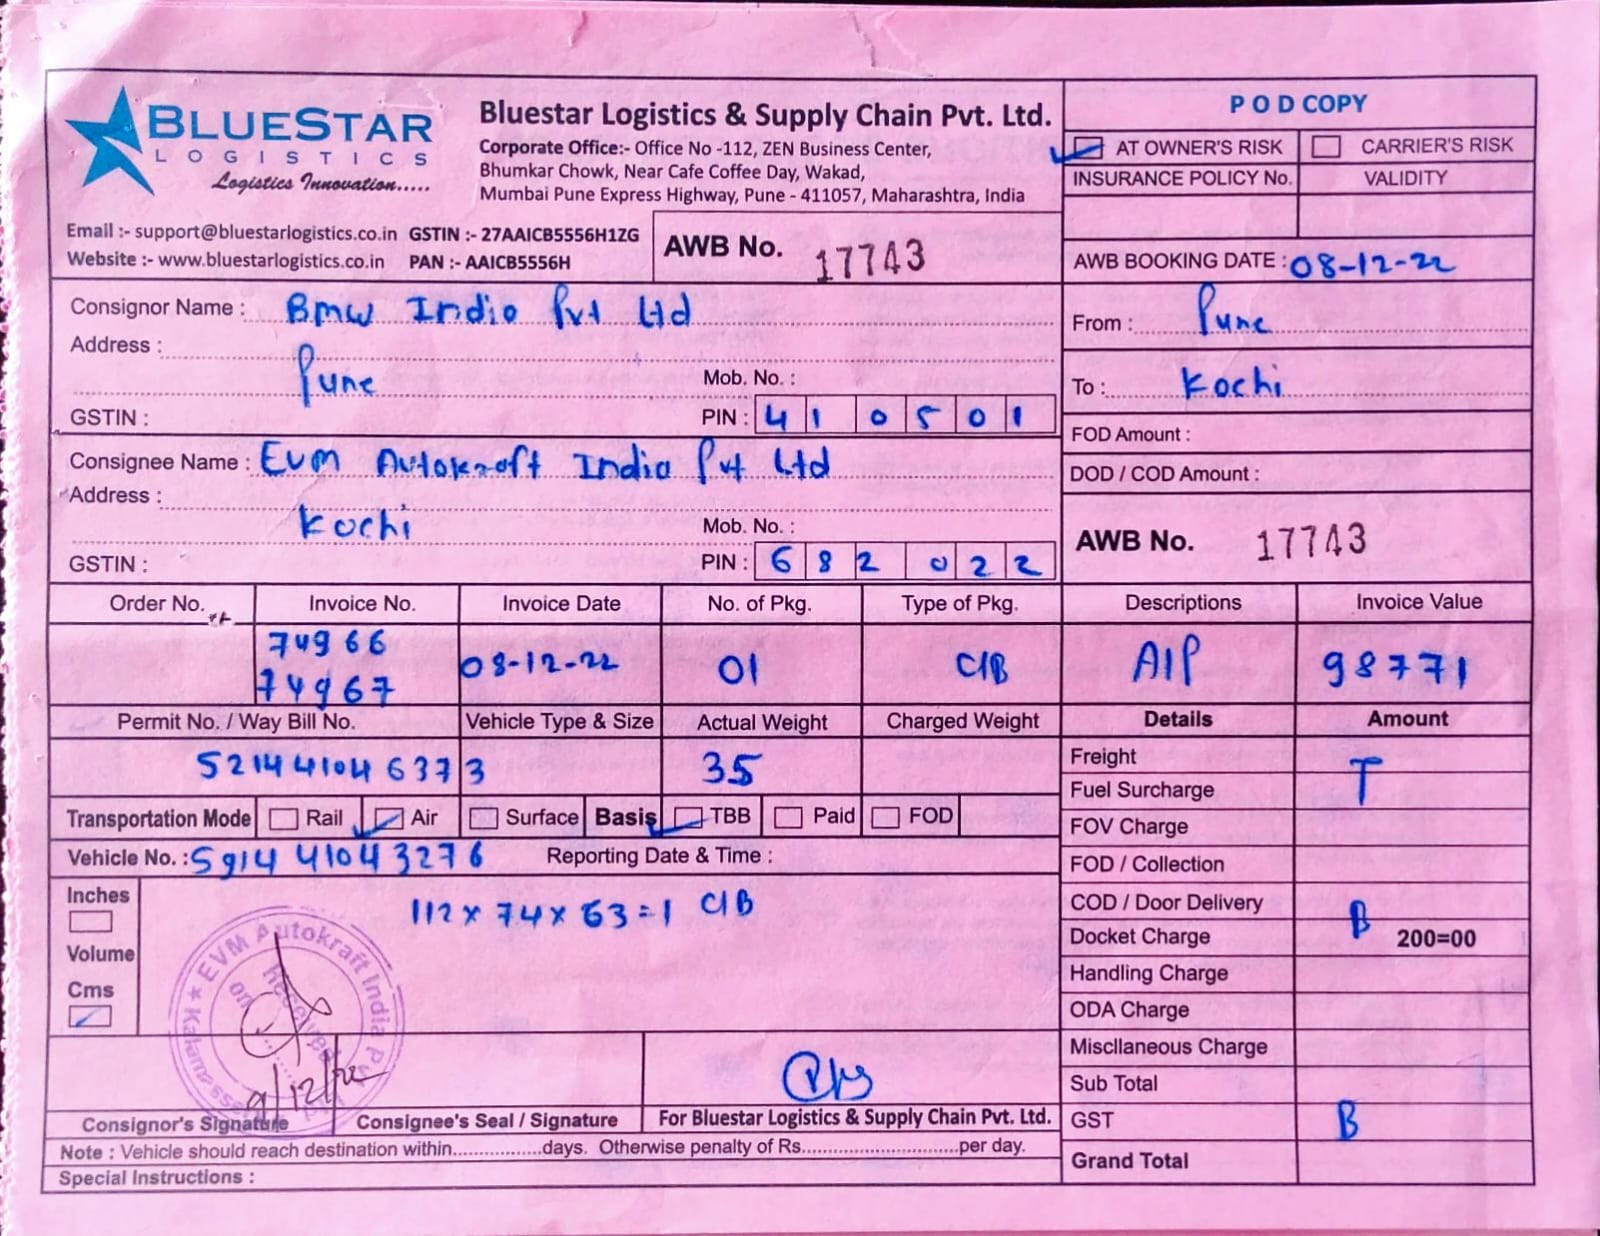 BLUESTAR
LOGISTICS
Logistics Innovation.....
Bluestar Logistics & Supply Chain Pvt. Ltd.
Corporate Office:- Office No -112, ZEN Business Center,
Bhumkar Chowk, Near Cafe Coffee Day, Wakad,
Mumbai Pune Express Highway, Pune - 411057, Maharashtra, India
Email :- support@bluestarlogistics.co.in GSTIN :- 27AAICB5556H1ZG
Website :- www.bluestarlogistics.co.in PAN :- AAICB5556H
AWB No. 17743
P O D COPY
AT OWNER'S RISK CARRIER'S RISK
INSURANCE POLICY No. VALIDITY
AWB BOOKING DATE : 08-12-22
Consignor Name : Bmw India Pvt Ltd
Address :
Pune
Mob. No. :
GSTIN : PIN : 410501
From : Pune
To : Kochi
FOD Amount :
DOD / COD Amount :
AWB No. 17743
Consignee Name : Evm Autokraft India Pvt Ltd
Address :
Kochi
Mob. No. :
GSTIN : PIN : 682022
Order No. Invoice No. Invoice Date No. of Pkg. Type of Pkg. Descriptions Invoice Value
74966
74967 08-12-22 01 C/B A/P 98771
Permit No. / Way Bill No. Vehicle Type & Size Actual Weight Charged Weight Details Amount
521441046373 35
Transportation Mode Rail Air Surface Basis TBB Paid FOD
Vehicle No. : 591441043276 Reporting Date & Time :
Inches
Volume
Cms
112 x 74 x 63 = 1 C/B
EVM Autokraft India
Received
on
9/12/22
Freight T
Fuel Surcharge
FOV Charge
FOD / Collection
COD / Door Delivery
B
Docket Charge 200=00
Handling Charge
ODA Charge
Miscllaneous Charge
Sub Total
GST B
Grand Total
Consignor's Signature Consignee's Seal / Signature For Bluestar Logistics & Supply Chain Pvt. Ltd.
Note : Vehicle should reach destination within.................days. Otherwise penalty of Rs...............................per day.
Special Instructions :